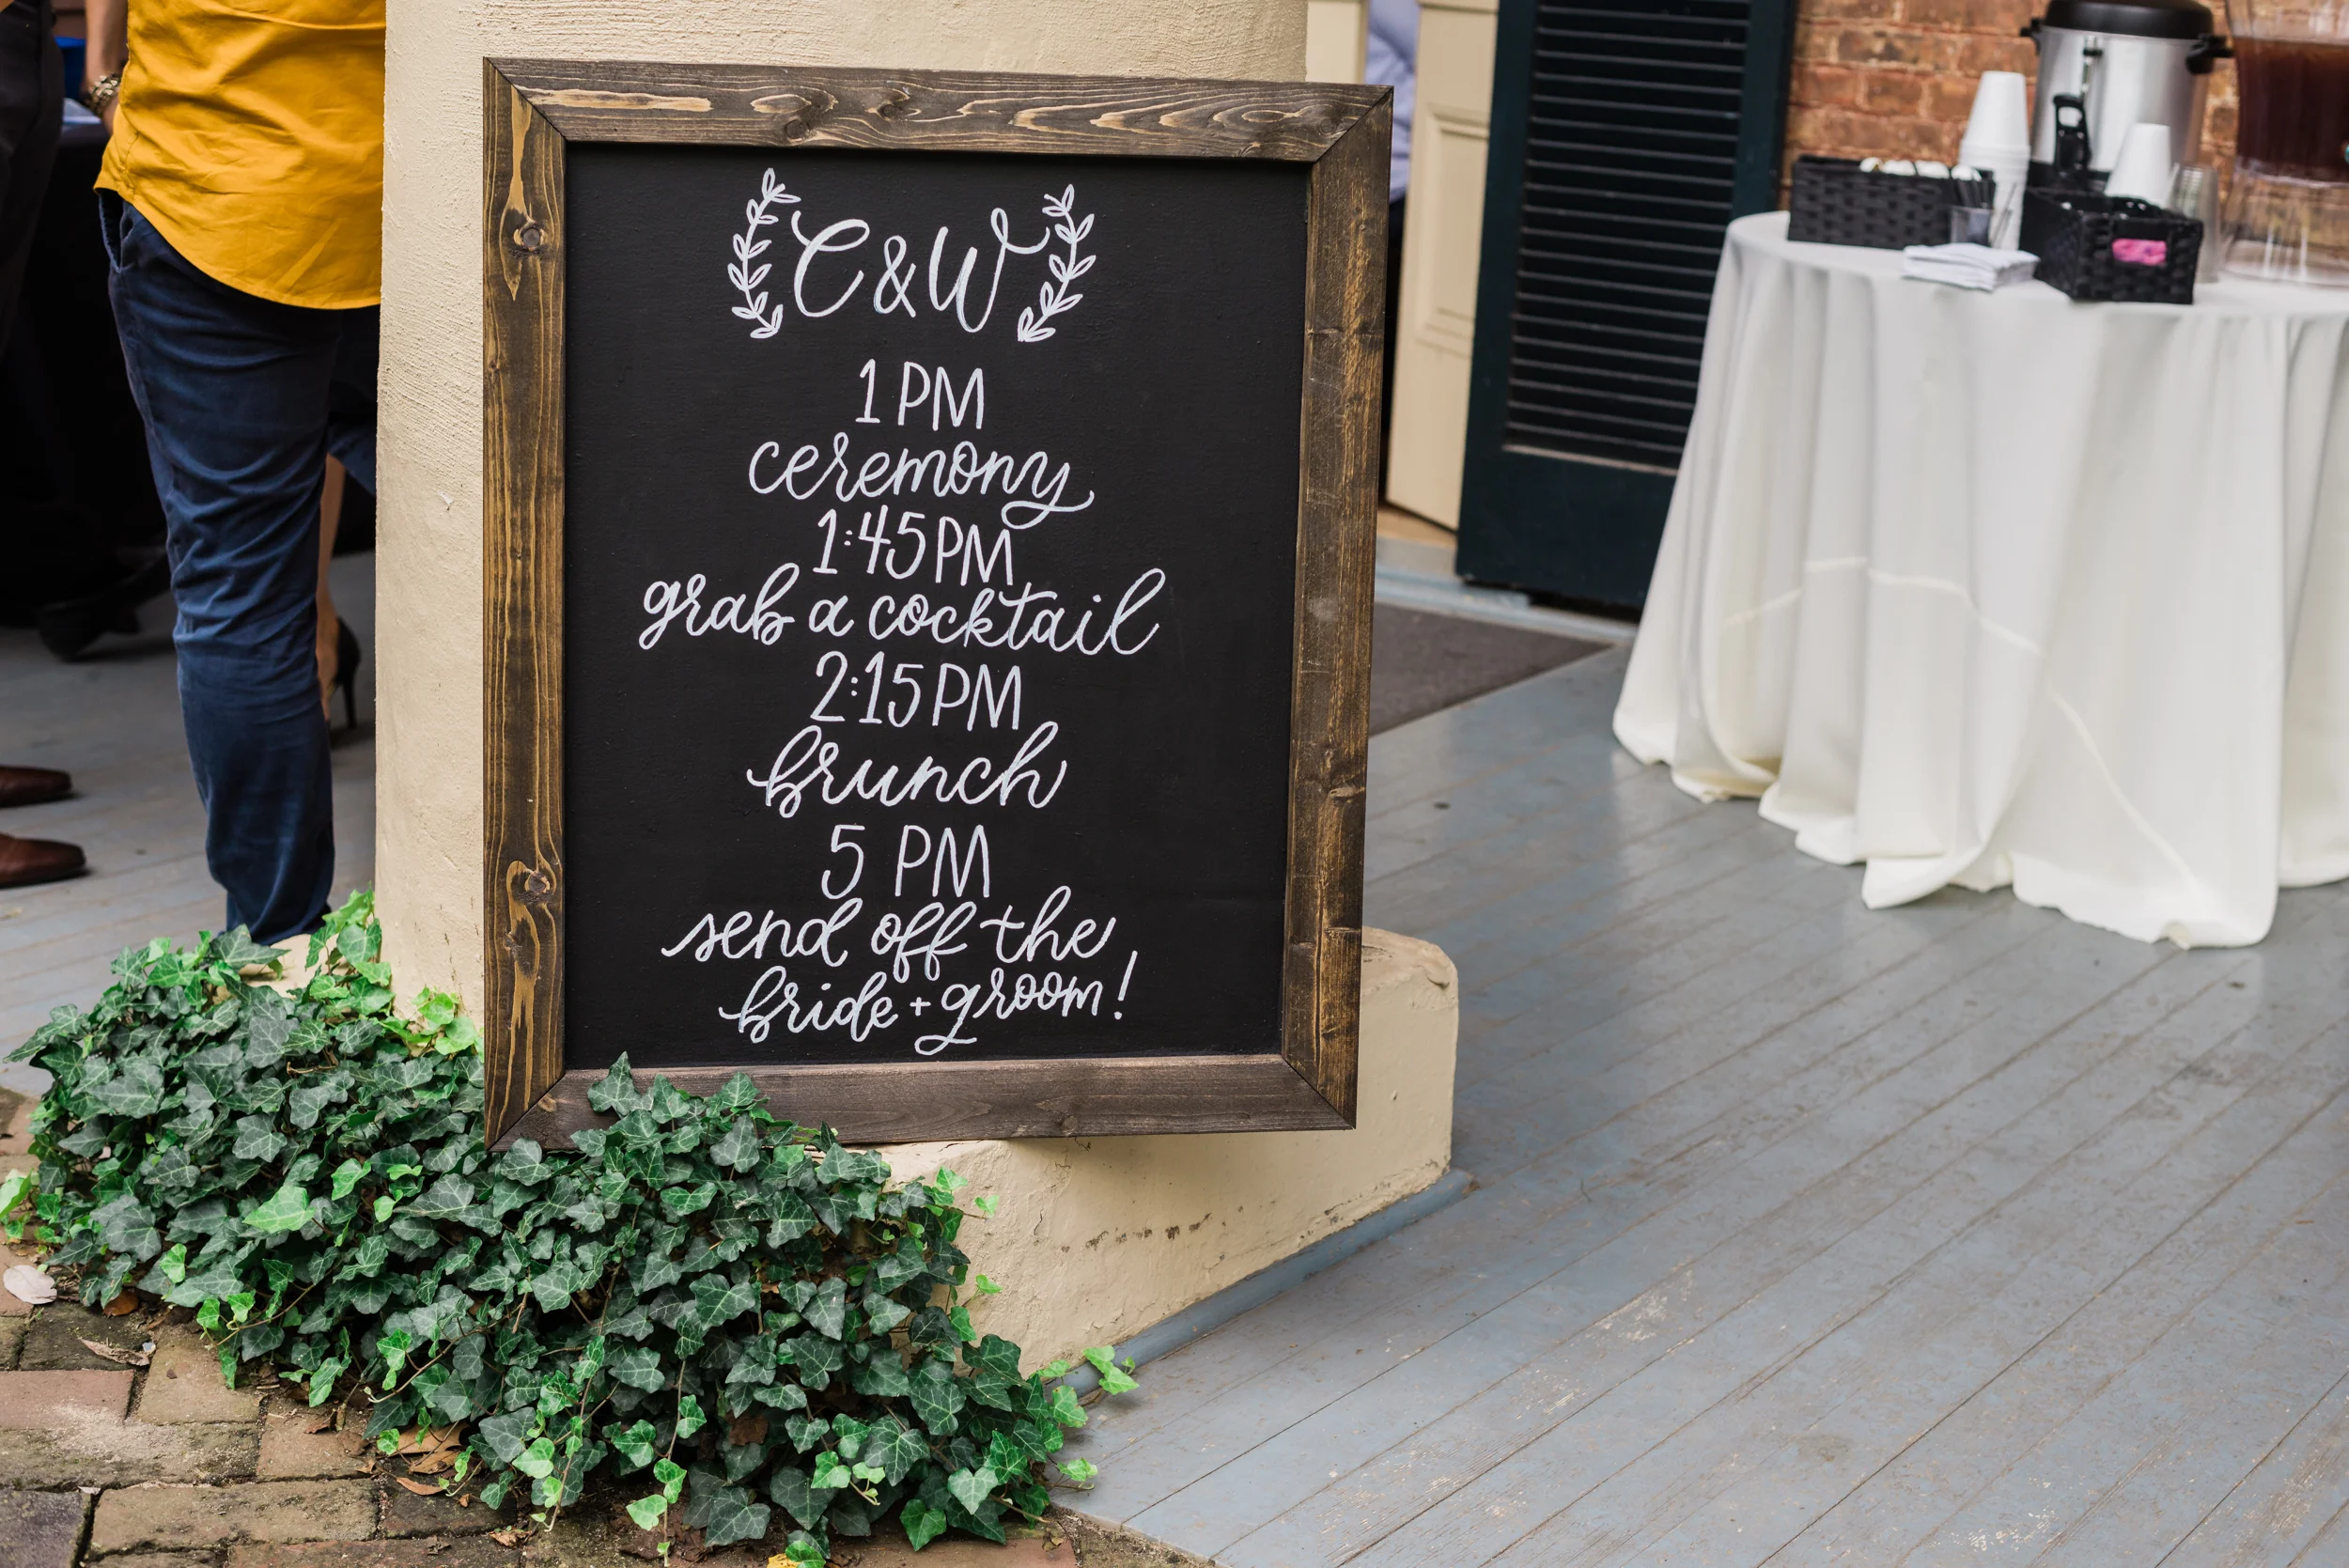 C&W
1 PM
ceremony
1:45 PM
grab a cocktail
2:15 PM
brunch
5 PM
send off the
bride + groom!